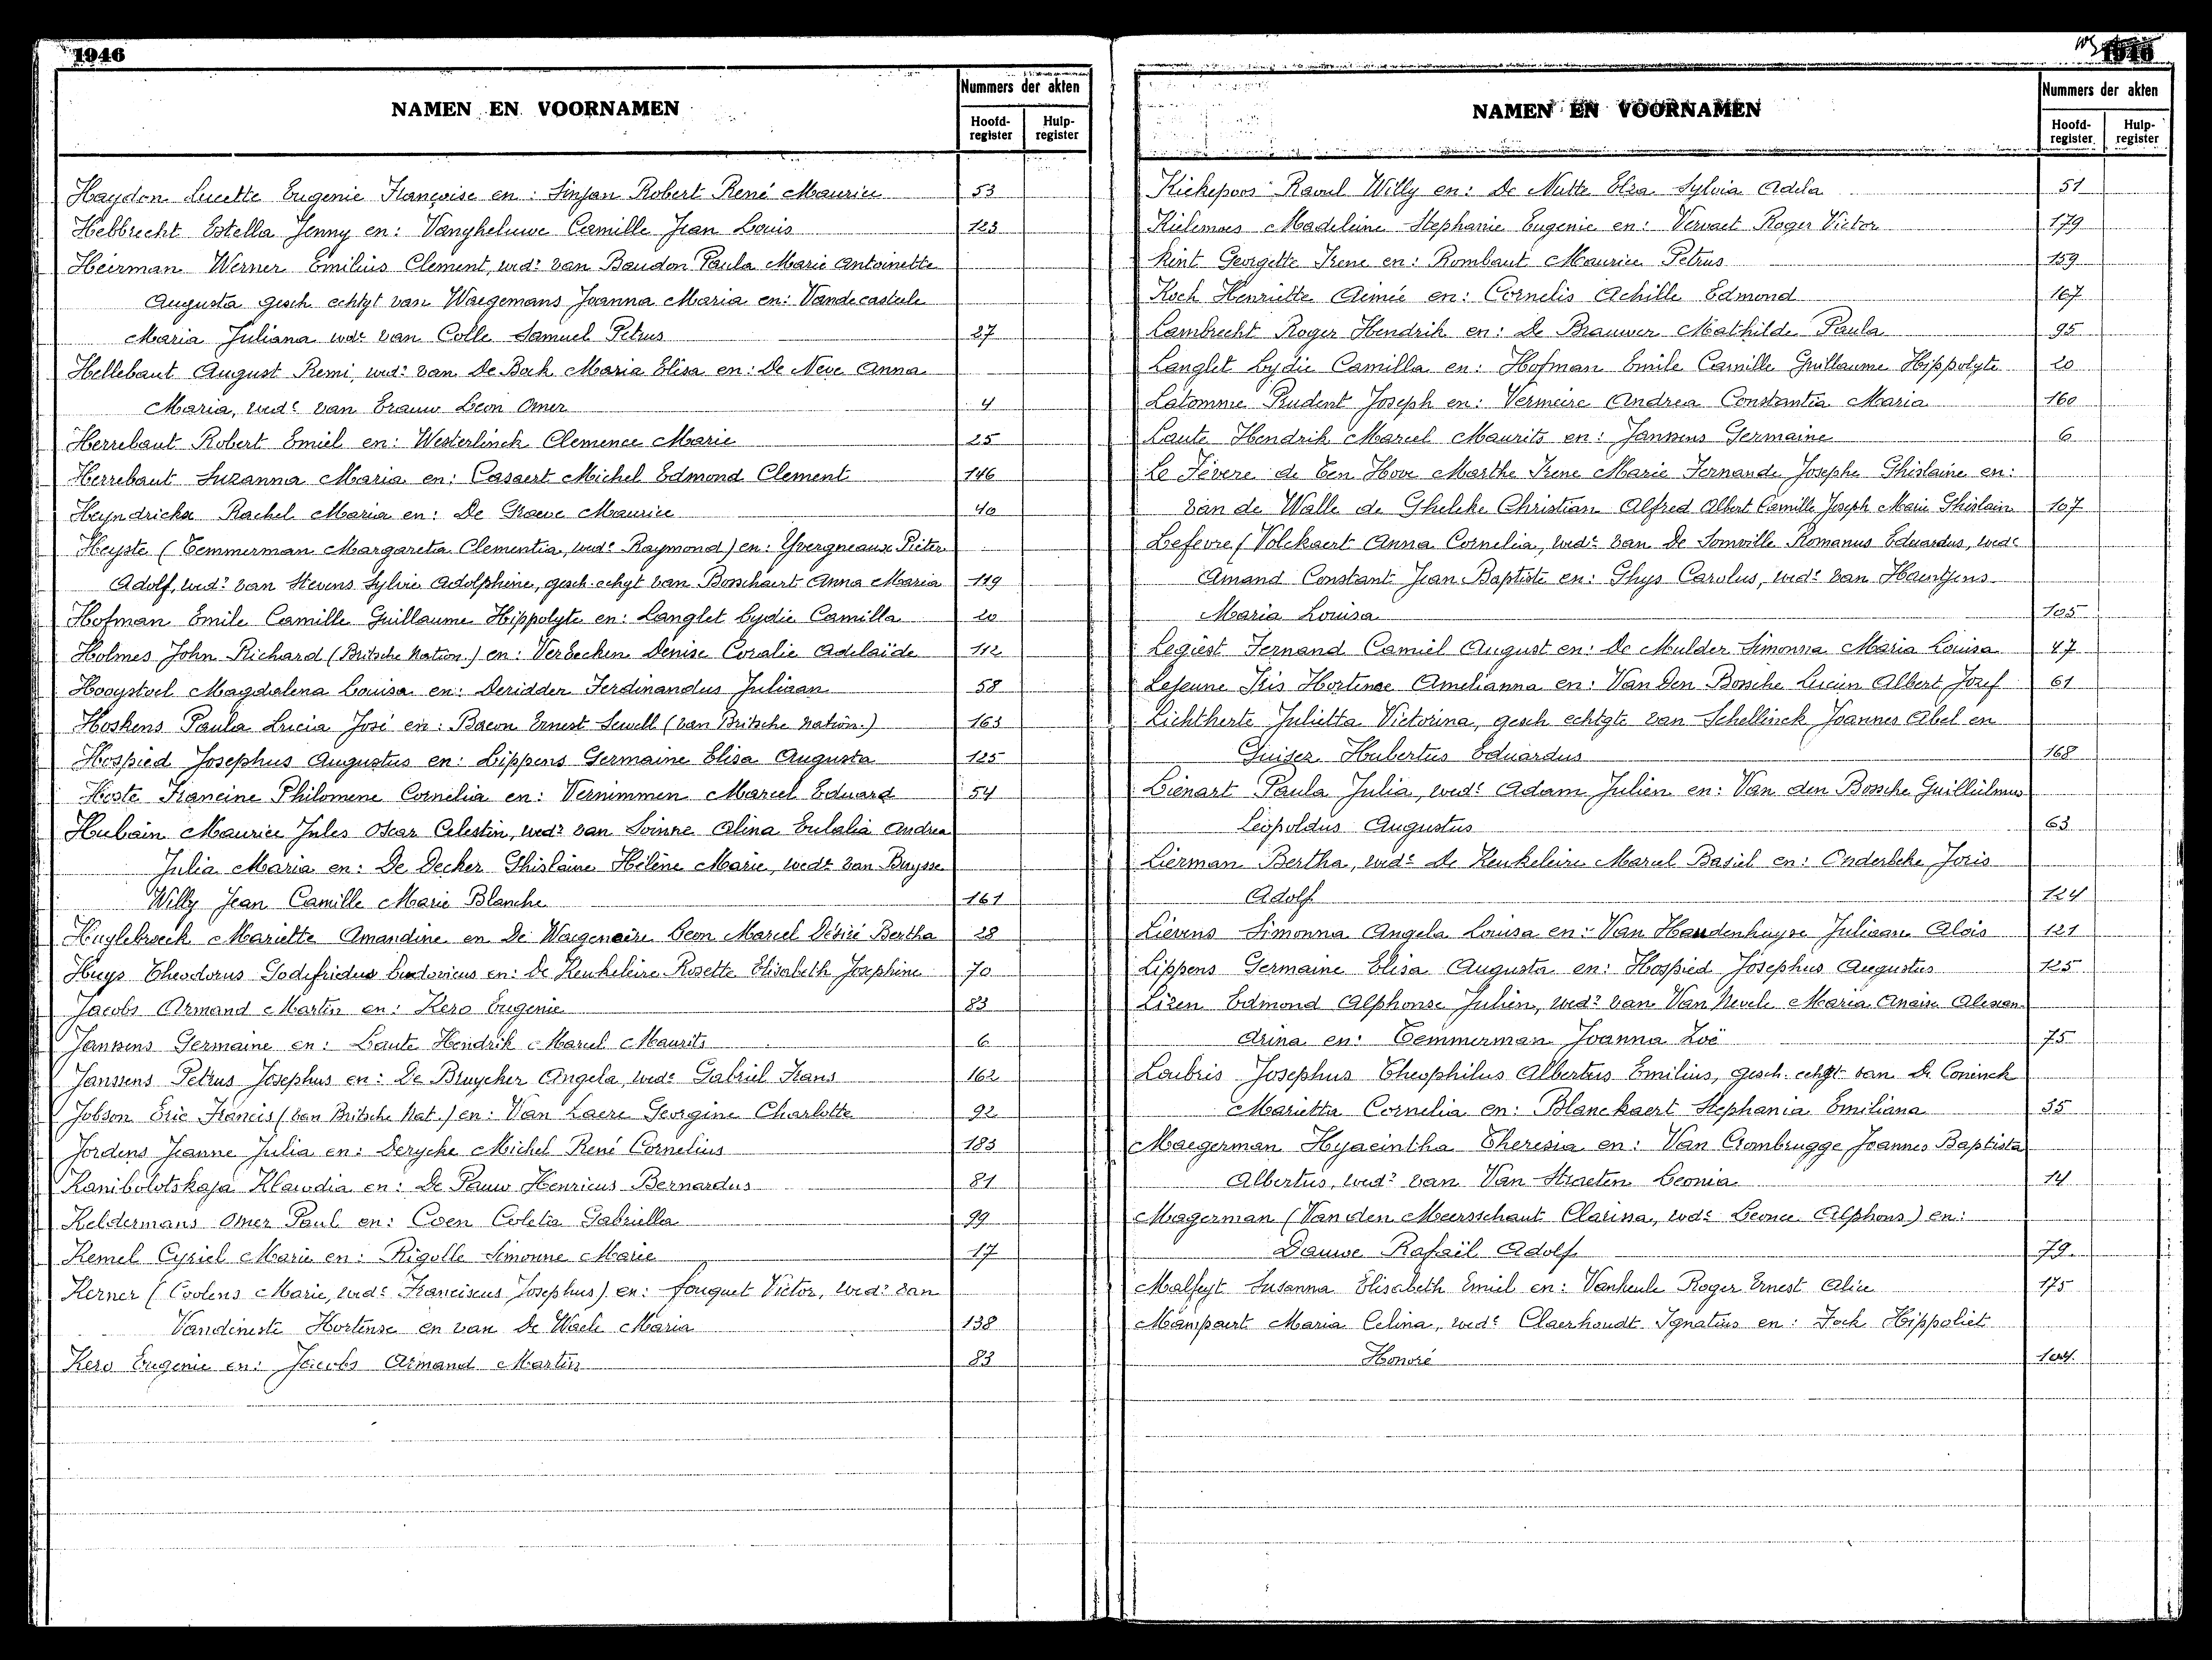 1946
NAMEN EN VOORNAMEN
Nummers der akten
Hoofd-register
Hulp-register
Haydon Lucette Eugenie Françoise en: Sinjan Robert René Maurice 53
Hebbrecht Estella Jenny en: Vangheluwe Camille Jean Louis 123
Heirman Werner Emilius Clement, wedr van Baudon Paula Marie Antoinette
Augusta gesch echtgt van Waegemans Joanna Maria en: Vandecasteele
Maria Juliana wde van Colle Samuel Petrus 27
Hellebaut August Remi, wedr van De Bock Maria Elisa en: De Neve Anna
Maria, wede van Erauw Leon Omer 4
Herrebaut Robert Emiel en: Westerlinck Clemence Marie 25
Herrebaut Suzanna Maria en: Casaert Michel Edmond Clement 146
Heyndrickx Rachel Maria en: De Graeve Maurice 40
Heyste (Temmerman Margareta Clementia, wede Raymond) en: Ybergneaux Pieter
Adolf, wedr van Stevens Sylvie Adolphine, gesch. echgt van Bosschaert Anna Maria 119
Hofman Emile Camille Guillaume Hippolyte en: Langlet Lydie Camilla 20
Holmes John Richard (Britsche Nation.) en: Verbecken Denise Coralie Adelaïde 112
Hooystoel Magdalena Louisa en: Deridder Ferdinandus Juliaan 58
Hoskens Paula Lucia José en: Bacon Ernest Sewell (van Britsche Nation.) 163
Hospied Josephus Augustus en: Lippens Germaine Elisa Augusta 125
Hoste Francine Philomene Cornelia en: Vernimmen Marcel Eduard 54
Hubain Maurice Jules Oscar Celestin, wedr van Soinne Alina Eulalia Andrea
Julia Maria en: De Decker Ghislaine Hélène Marie, wede van Buysse
Willy Jean Camille Marie Blanche 161
Huylebroeck Mariette Amandine en De Waegenaire Leon Marcel Désiré Bertha 28
Huys Theodorus Godefridus Ludovicus en: De Keukeleire Rosette Elisabeth Josephine 70
Jacobs Armand Martin en: Kero Eugenie 83
Janssens Germaine en: Laute Hendrik Marcel Maurits 6
Janssens Petrus Josephus en: De Bruycker Angela, wede Gabriel Frans 162
Jobson Eric Francis (van Britsche Nat.) en: Van Laere Georgine Charlotte 92
Jordens Jeanne Julia en: Derycke Michel René Cornelius 183
Kanibolotskaja Klawdia en: De Pauw Henricus Bernardus 81
Keldermans Omer Paul en: Coen Coleta Gabriella 99
Kemel Cyriel Marie en: Rigolle Simonne Marie 17
Kerner (Coolens Marie, wede Franciscus Josephus) en: fouquet Victor, wedr van
Vandineste Hortense en van De Waele Maria 138
Kero Eugenie en: Jacobs Armand Martin 83
1946
NAMEN EN VOORNAMEN
Nummers der akten
Hoofd-register
Hulp-register
Kiekepoos Raoul Willy en: De Nutte Elza Sylvia Adela 51
Kielemoes Madeleine Stephanie Eugenie en: Vervaet Roger Victor 179
Kint Georgette Irene en: Rombaut Maurice Petrus 159
Koch Henriette Aimée en: Cornelis Achille Edmond 167
Lambrecht Roger Hendrik en: De Brauwer Mathilde Paula 95
Langlet Lydie Camilla en: Hofman Emile Camille Guillaume Hippolyte 20
Latomme Prudent Joseph en: Vermeire Andrea Constantia Maria 160
Laute Hendrik Marcel Maurits en: Janssens Germaine 6
Le Fèvere de Ten Hove Marthe Irene Marie Fernande Josephe Ghislaine en:
van de Walle de Ghelcke Christian Alfred Albert Camille Joseph Marie Ghislain 107
Lefevre (Volckaert Anna Cornelia, wede van De Somville Romanus Eduardus, wede
Amand Constant Jean Baptiste en: Ghys Carolus, wedr van Haentjens
Maria Louisa 105
Legiest Fernand Camiel August en: De Mulder Simonna Maria Louisa 47
Lejeune Iris Hortense Amelianna en: Van Den Bossche Lucien Albert Jozef 61
Lichtherte Julietta Victorina, gesch echtgte van Schellinck Joannes Abel en
Guiser Hubertus Eduardus 168
Lienart Paula Julia, wede Adam Julien en: Van den Bossche Guillielmus
Leopoldus Augustus 63
Lierman Bertha, wede De Keukeleire Marcel Basiel en: Onderbeke Joris
Adolf 124
Lievens Simonna Angela Louisa en: Van Haudenhuyse Juliaan Alois 121
Lippens Germaine Elisa Augusta en: Hospied Josephus Augustus 125
Lizen Edmond Alphonse Julien, wedr van Van Nevele Maria Anaise Alexan-
drina en: Temmerman Joanna Zoë 75
Loubris Josephus Theophilus Albertus Emilius, gesch. echgt van De Coninck
Marietta Cornelia en: Blanckaert Stephania Emiliana 35
Maegerman Hyacintha Theresia en: Van Crombrugge Joannes Baptista
Albertus, wedr van Van Straeten Leonia 14
Magerman (Van den Meersschaut Clarina, wde Leonce Alphons) en:
Dauwe Rafaël Adolf 79
Malfeyt Susanna Elisabeth Emiel en: Vanheule Roger Ernest Alice 175
Mampaert Maria Celina, wede Claerhoudt Ignatius en: Fock Hippoliet
Honoré